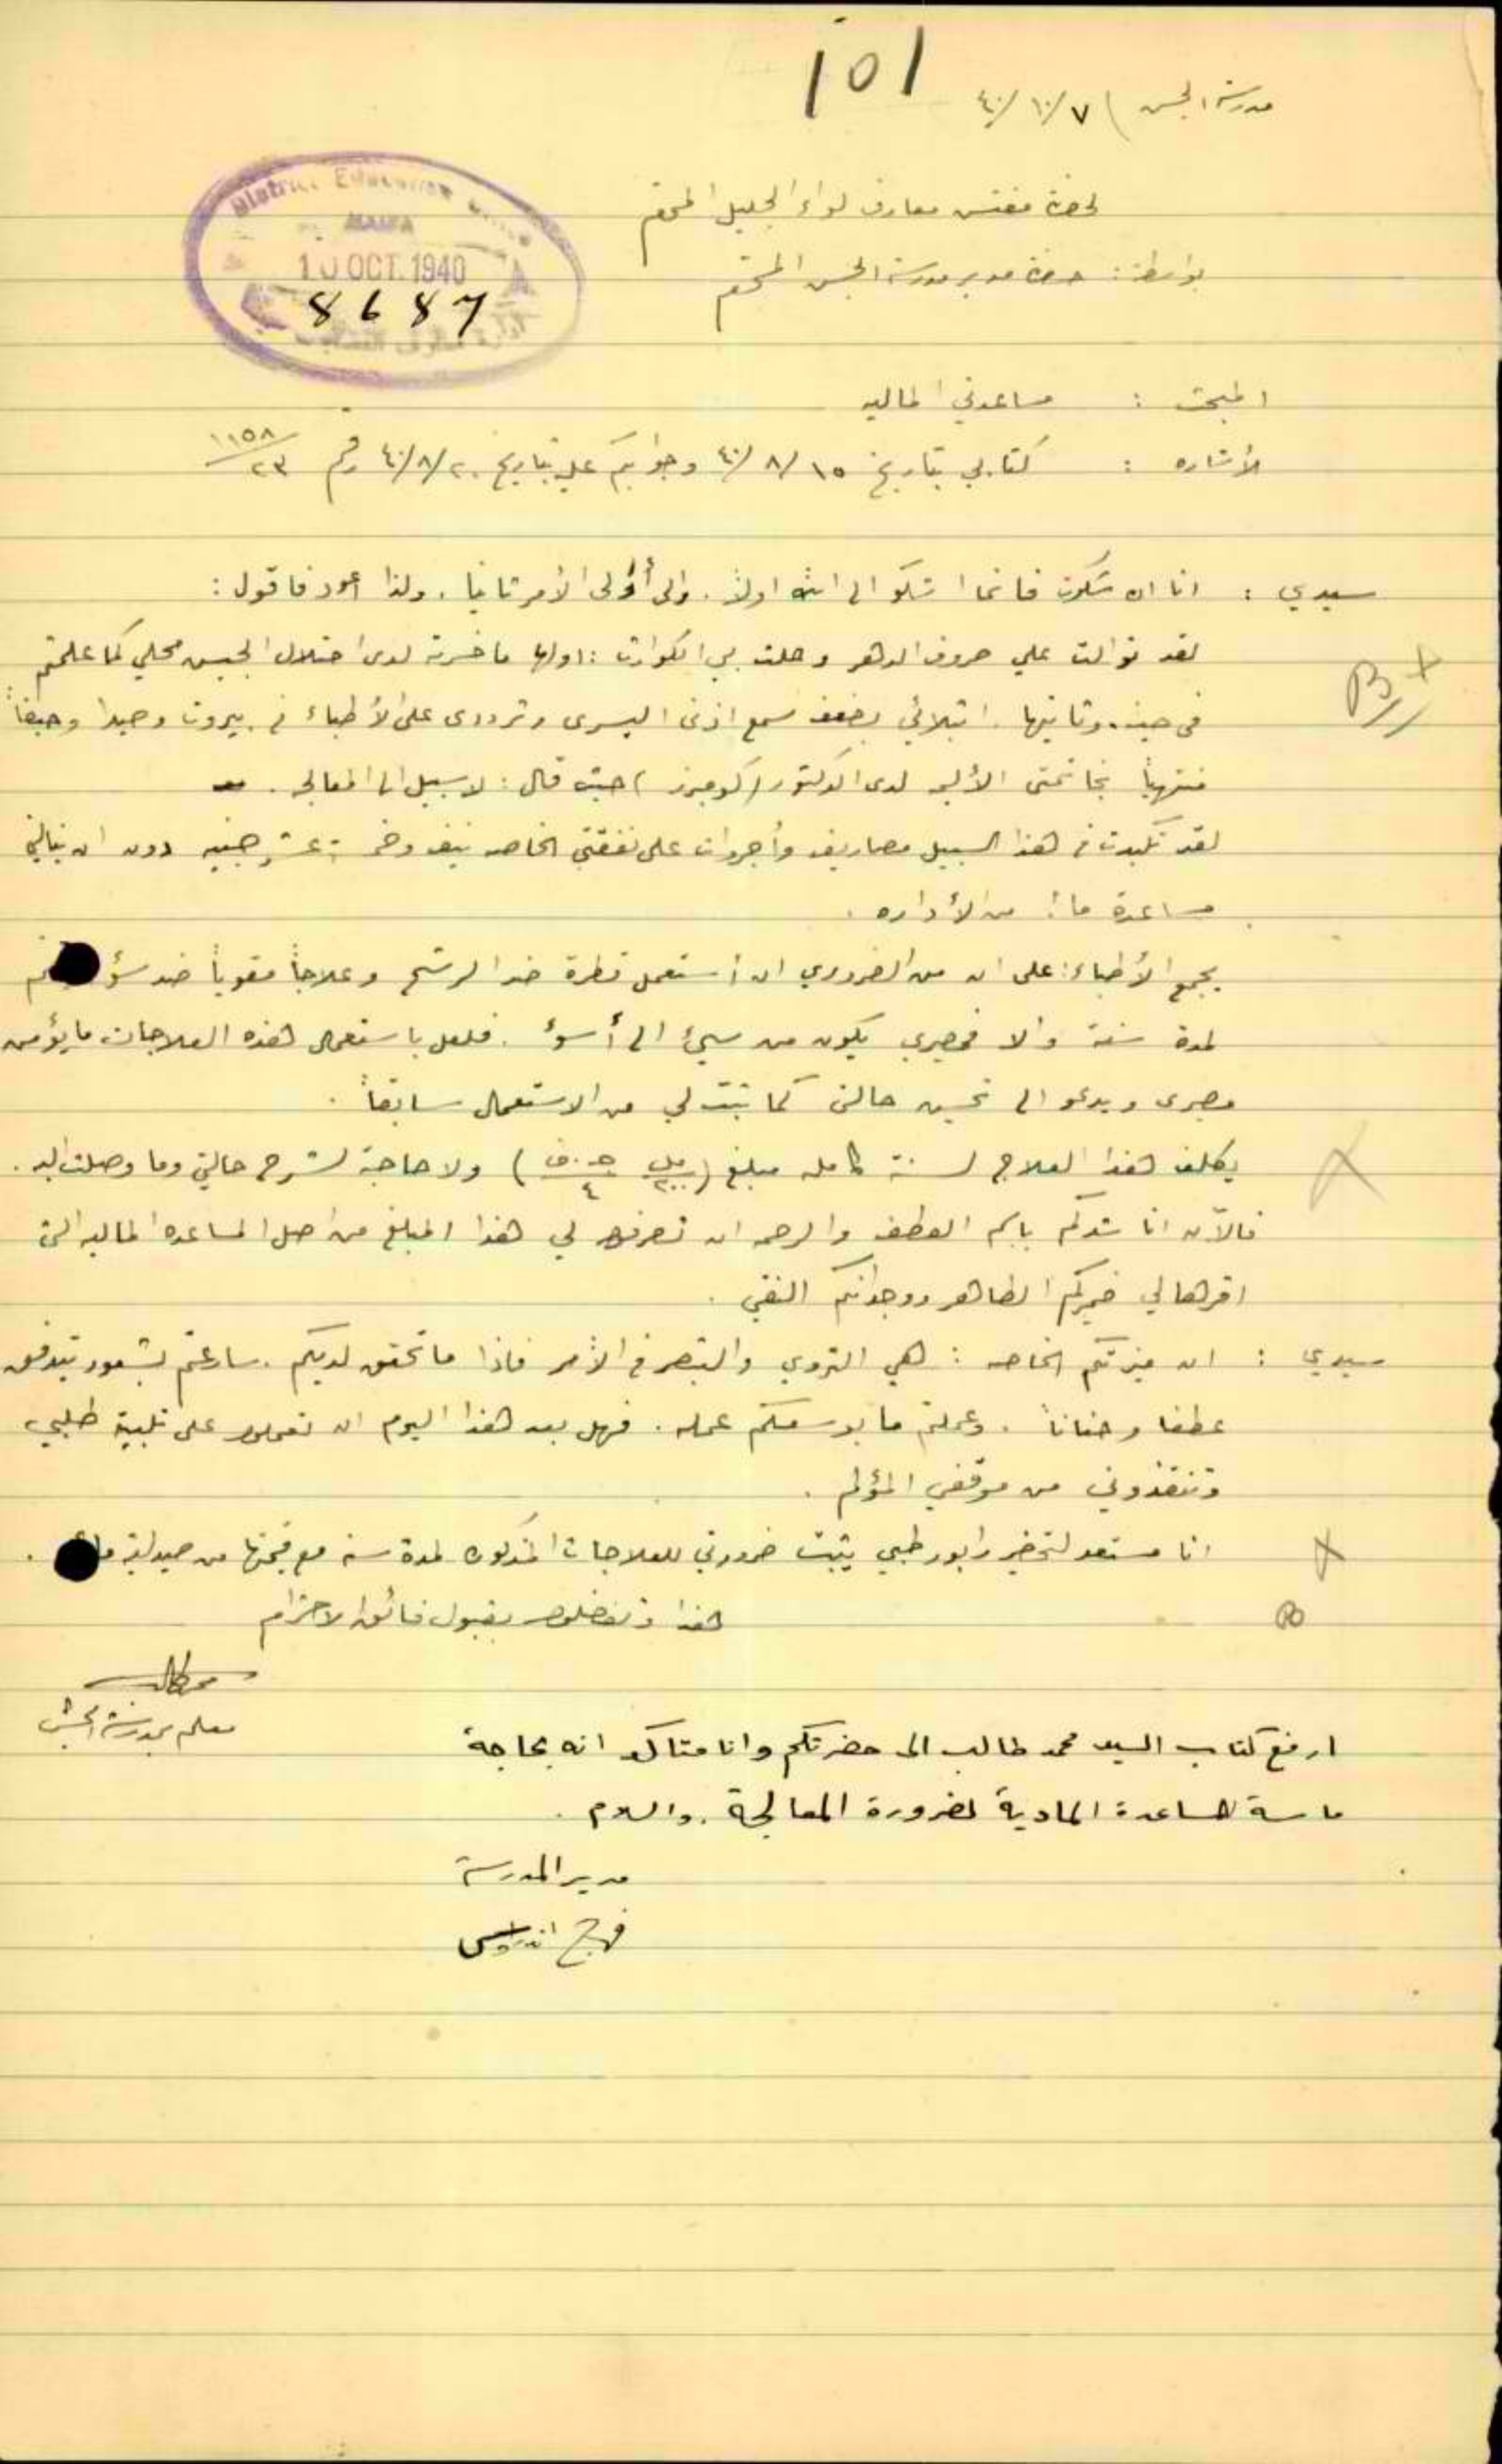 101
مدرسة الجش ) ٧/١٠/٤٠
لحضرة مفتش معارف لواء الجليل المحترم
بواسطة : حضرة مدير مدرسة الجش المحترم
District Education Office
HAIFA
10 OCT. 1940
8687
المبحث : مساعدتي الماليه
الأشاره : كتابي بتاريخ ١٥/٨/٤٠ وجوابكم عليه بتاريخ ٢٠/٨/٤٠ رقم ١١٥٨/٢٣
سيدي : انا ان شكوت فانما اشكو الى الله اولاً . والى أولى الأمر ثانيا . ولذا اعود فاقول :
لقد توالت علي صروف الدهر وحلت بي الكوارث : اولها ما خسرته لدى احتلال الجيش محلي كما علمتم
في حينه . وثانيها . ابتلائي بضعف سمع اذني اليسرى وترددي على الأطباء في بيروت وصيدا وحيفا
منتهياً بخاتمتي الأليمه لدى الدكتور ( كومبرز ) حيث قال : لا سبيل الى المعالجه .
لقد تكبدت في هذا السبيل مصاريف وأجروات على نفقتي الخاصه نيف وخمسة عشر جنيه دون ان ينالني
مساعدة ما من الأداره .
يجمع الأطباء : على ان من الضروري ان أستعمل قطرة ضد الرشح وعلاجاً مقوياً ضد سؤ
لمدة سنة والا فمصيري يكون من سيئ الى أسوأ . فلعل باستعمال هذه العلاجات ما يؤمن
مصيري ويدعو الى تحسين حالتي كما ثبت لي من الاستعمال سابقاً .
يكلف هذا العلاج لسنة كامله مبلغ ( مل ٢٠٠ ج.ف ٤ ) ولا حاجة لشرح حالتي وما وصلت اليه .
فالآن انا شدكم باسم العطف والرحمه ان تصرفوا لي هذا المبلغ من اصل المساعده الماليه التي
اقرها لي ضميركم الطاهر ووجدانكم النقي .
سيدي : ان ميزتكم الخاصه : هي التروي والتبصر في الأمر فاذا ما تحقق لديكم . سارعتم بشعور يتدفق
عطفا وحنانا . وعملتم ما بوسعكم عمله . فهل بعد هذا اليوم ان تعملوا على تلبية طلبي
وتنقذوني من موقفي المؤلم .
انا مستعد لتحضير رابور طبي يثبت ضرورتي للعلاجات المذكوره لمدة سنه مع قيمتها من صيدلية ما .
هذا وتفضلوا بقبول فائق الاحترام
محمد طالب
معلم بمدرسة الجش
ارفع كتاب السيد محمد طالب الى حضرتكم وانا متاكد انه بحاجة
ماسة للمساعدة المادية لضرورة المعالجة . والسلام .
مدير المدرسة
فرج اندراوس